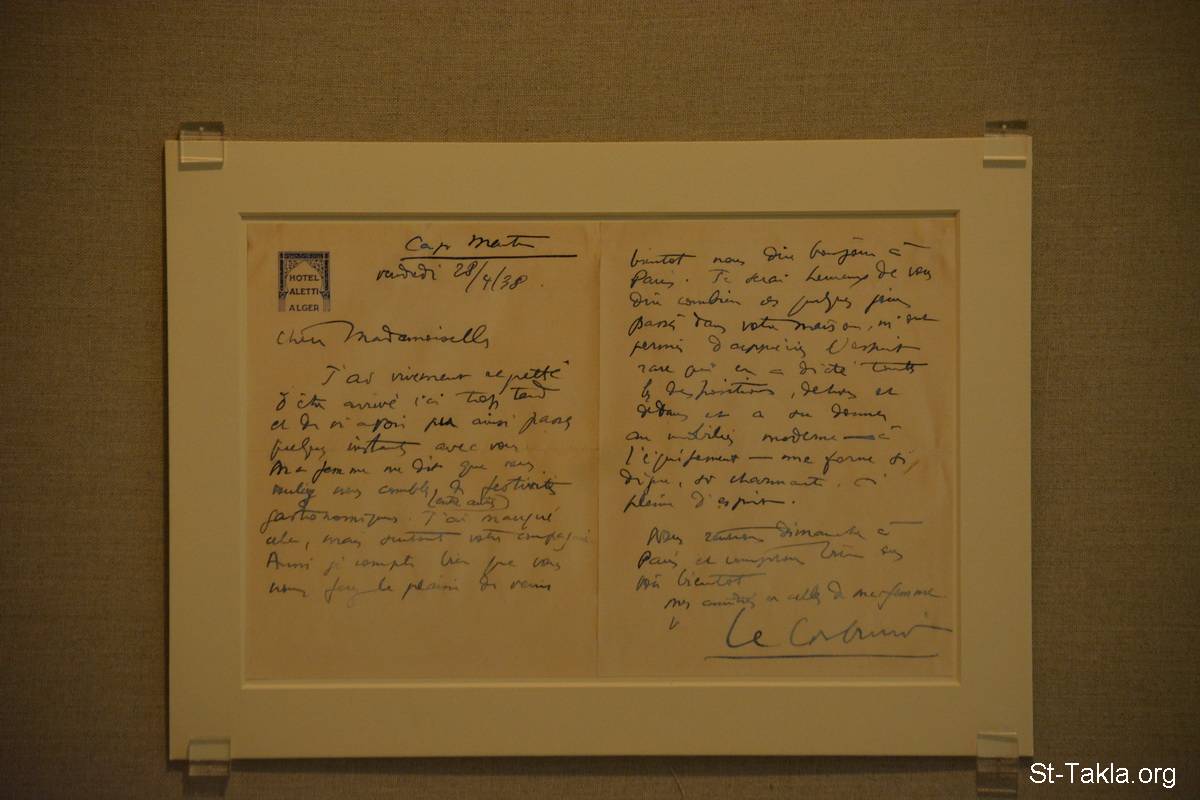 HOTEL
ALETTI
ALGER
Cap Martin
vendredi 28/4/38
Chère Mademoiselle
J'ai vivement regretté
d'être arrivé ici trop tard
et de n'avoir pu ainsi passer
quelques instants avec vous.
Ma femme me dit que vous
nous comblé de festivités
(entre autres)
gastronomiques. J'ai manqué
cela, mais surtout votre compagnie.
Aussi je compte bien que vous
nous ferez le plaisir de venir
bientot nous dire bonjour à
Paris. Je serai heureux de vous
dire combien ces quelques jours
passés dans votre maison, m'ont
permis d'apprécier l'esprit
rare qui en a dicté toutes
les dispositions, dehors et
dedans et a su donner
au mobilier moderne — à
l'équipement — une forme si
digne, si charmante, si
pleine d'esprit.
Nous rentrons dimanche à
Paris et comptons bien vous
voir bientot
mes amitiés et celles de ma femme
Le Corbusier
St-Takla.org